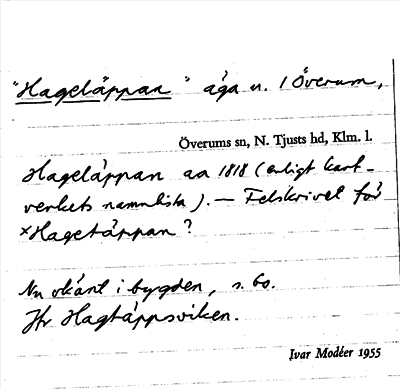 "Hageläppan" äga u. / Överum,
Överums sn, N. Tjusts hd, Klm. l.
Hageläppan aa 1818 (enligt kart-
verkets namnlista). — Felskrivet för
×Hagetäppan?
Nu okänt i bygden, s. bo.
Jfr Hagtäppsviken.
Ivar Modéer 1955